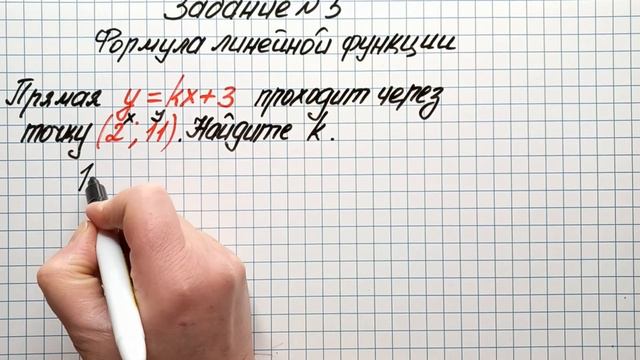 Задание №3
Формула линейной функции
Прямая y = kx + 3 проходит через
x y
точку (2 ; 11). Найдите k.
1